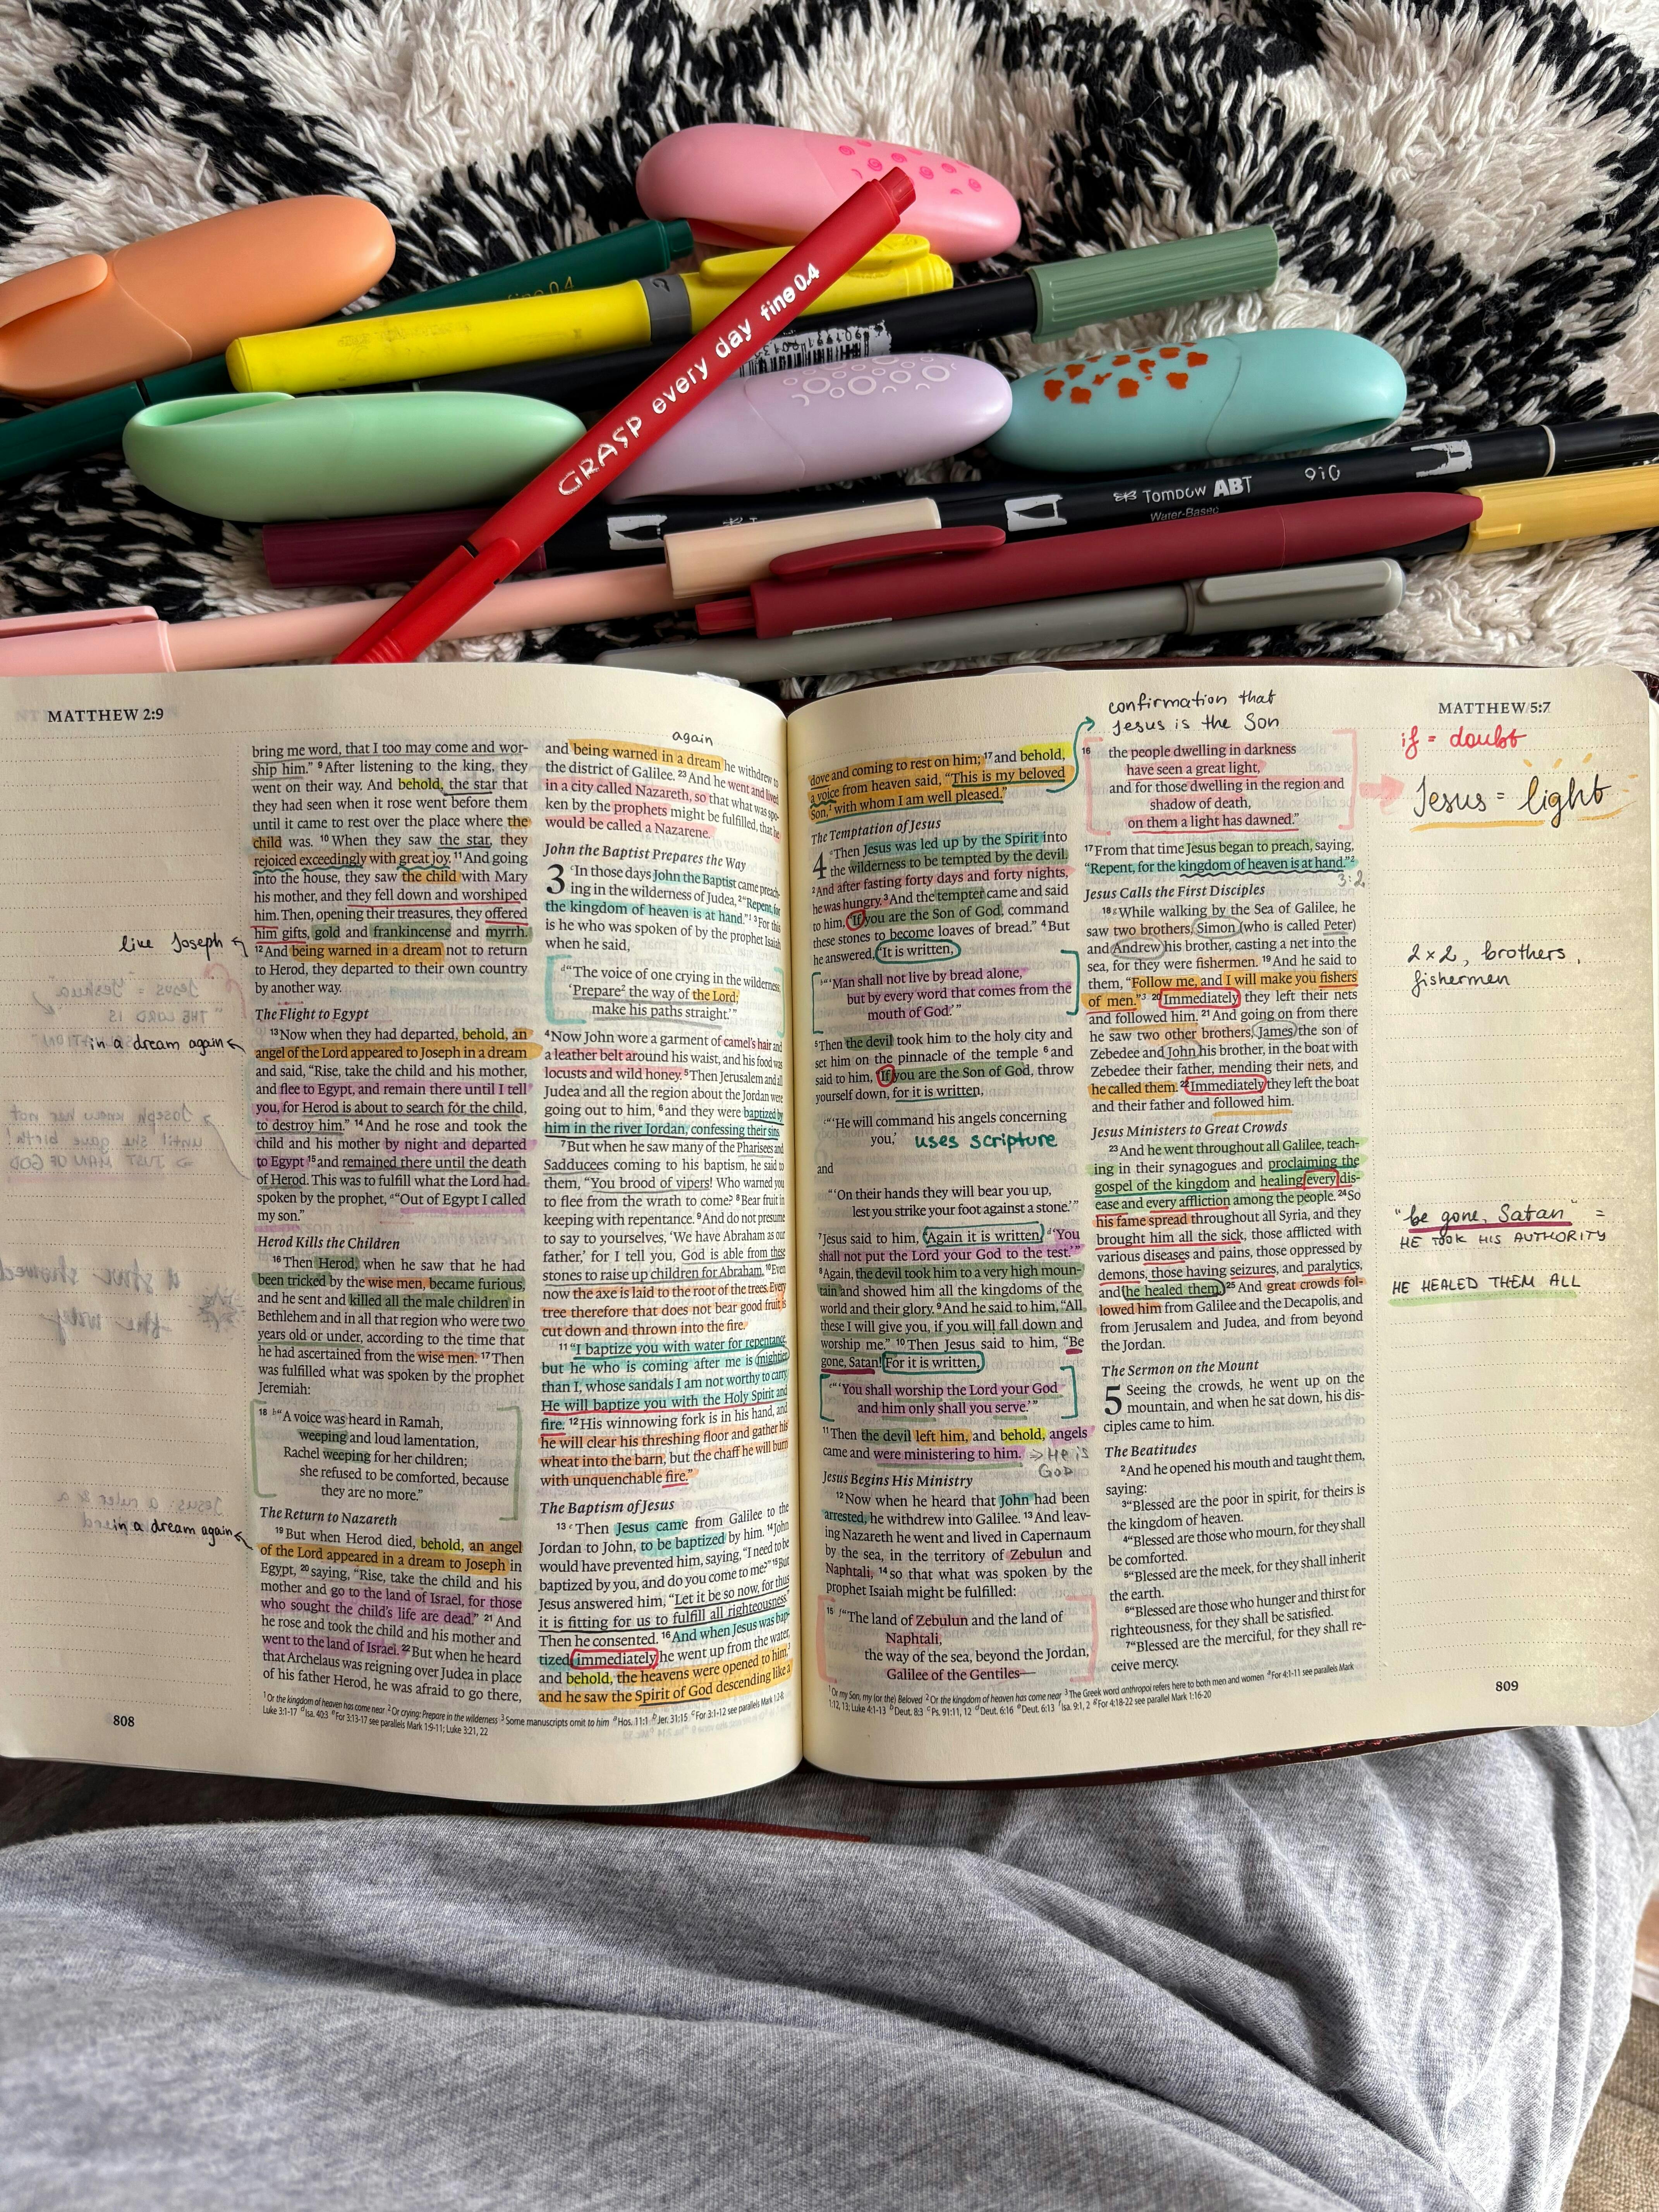 fine 0.4
GRASP every day fine 0.4
Tombow ABT 910
Water-Based
MATTHEW 2:9
bring me word, that I too may come and wor-
ship him.” 9 After listening to the king, they
went on their way. And behold, the star that
they had seen when it rose went before them
until it came to rest over the place where the
child was. 10 When they saw the star, they
rejoiced exceedingly with great joy. 11 And going
into the house, they saw the child with Mary
his mother, and they fell down and worshiped
him. Then, opening their treasures, they offered
him gifts, gold and frankincense and myrrh.
12 And being warned in a dream not to return
to Herod, they departed to their own country
by another way.
live Joseph
The Flight to Egypt
13 Now when they had departed, behold, an
angel of the Lord appeared to Joseph in a dream
and said, “Rise, take the child and his mother,
and flee to Egypt, and remain there until I tell
you, for Herod is about to search for the child,
to destroy him.” 14 And he rose and took the
child and his mother by night and departed
to Egypt 15 and remained there until the death
of Herod. This was to fulfill what the Lord had
spoken by the prophet, a “Out of Egypt I called
my son.”
in a dream again
Herod Kills the Children
16 Then Herod, when he saw that he had
been tricked by the wise men, became furious,
and he sent and killed all the male children in
Bethlehem and in all that region who were two
years old or under, according to the time that
he had ascertained from the wise men. 17 Then
was fulfilled what was spoken by the prophet
Jeremiah:
18 b “A voice was heard in Ramah,
weeping and loud lamentation,
Rachel weeping for her children;
she refused to be comforted, because
they are no more.”
The Return to Nazareth
19 But when Herod died, behold, an angel
of the Lord appeared in a dream to Joseph in
Egypt, 20 saying, “Rise, take the child and his
mother and go to the land of Israel, for those
who sought the child’s life are dead.” 21 And
he rose and took the child and his mother and
went to the land of Israel. 22 But when he heard
that Archelaus was reigning over Judea in place
of his father Herod, he was afraid to go there,
in a dream again
again
and being warned in a dream he withdrew to
the district of Galilee. 23 And he went and lived
in a city called Nazareth, so that what was spo-
ken by the prophets might be fulfilled, that he
would be called a Nazarene.
John the Baptist Prepares the Way
3 1 In those days John the Baptist came preach-
ing in the wilderness of Judea, 2 “Repent, for
the kingdom of heaven is at hand.” 1 3 For this
is he who was spoken of by the prophet Isaiah
when he said,
d “The voice of one crying in the wilderness:
‘Prepare 2 the way of the Lord;
make his paths straight.’”
4 Now John wore a garment of camel’s hair and
a leather belt around his waist, and his food was
locusts and wild honey. 5 Then Jerusalem and all
Judea and all the region about the Jordan were
going out to him, 6 and they were baptized by
him in the river Jordan, confessing their sins.
7 But when he saw many of the Pharisees and
Sadducees coming to his baptism, he said to
them, “You brood of vipers! Who warned you
to flee from the wrath to come? 8 Bear fruit in
keeping with repentance. 9 And do not presume
to say to yourselves, ‘We have Abraham as our
father,’ for I tell you, God is able from these
stones to raise up children for Abraham. 10 Even
now the axe is laid to the root of the trees. Every
tree therefore that does not bear good fruit is
cut down and thrown into the fire.
11 “I baptize you with water for repentance,
but he who is coming after me is mightier
than I, whose sandals I am not worthy to carry.
He will baptize you with the Holy Spirit and
fire. 12 His winnowing fork is in his hand, and
he will clear his threshing floor and gather his
wheat into the barn, but the chaff he will burn
with unquenchable fire.”
The Baptism of Jesus
13 c Then Jesus came from Galilee to the
Jordan to John, to be baptized by him. 14 John
would have prevented him, saying, “I need to be
baptized by you, and do you come to me?” 15 But
Jesus answered him, “Let it be so now, for thus
it is fitting for us to fulfill all righteousness.”
Then he consented. 16 And when Jesus was bap-
tized, immediately he went up from the water,
and behold, the heavens were opened to him, 3
and he saw the Spirit of God descending like a
1 Or the kingdom of heaven has come near 2 Or crying: Prepare in the wilderness 3 Some manuscripts omit to him a Hos. 11:1 b Jer. 31:15 c For 3:1-12 see parallels Mark 1:2-8;
Luke 3:1-17 d Isa. 40:3 e For 3:13-17 see parallels Mark 1:9-11; Luke 3:21, 22
808
confirmation that
Jesus is the Son
dove and coming to rest on him; 17 and behold,
a voice from heaven said, “This is my beloved
Son, 1 with whom I am well pleased.”
The Temptation of Jesus
4 a Then Jesus was led up by the Spirit into
the wilderness to be tempted by the devil.
2 And after fasting forty days and forty nights,
he was hungry. 3 And the tempter came and said
to him, “If you are the Son of God, command
these stones to become loaves of bread.” 4 But
he answered, “It is written,
b “‘Man shall not live by bread alone,
but by every word that comes from the
mouth of God.’”
5 Then the devil took him to the holy city and
set him on the pinnacle of the temple 6 and
said to him, “If you are the Son of God, throw
yourself down, for it is written,
c “‘He will command his angels concerning
you,’
uses scripture
and
“‘On their hands they will bear you up,
lest you strike your foot against a stone.’”
7 Jesus said to him, “Again it is written, d ‘You
shall not put the Lord your God to the test.’”
8 Again, the devil took him to a very high moun-
tain and showed him all the kingdoms of the
world and their glory. 9 And he said to him, “All
these I will give you, if you will fall down and
worship me.” 10 Then Jesus said to him, “Be
gone, Satan! For it is written,
e “‘You shall worship the Lord your God
and him only shall you serve.’”
11 Then the devil left him, and behold, angels
came and were ministering to him.
⇒ He is
GOD
Jesus Begins His Ministry
12 Now when he heard that John had been
arrested, he withdrew into Galilee. 13 And leav-
ing Nazareth he went and lived in Capernaum
by the sea, in the territory of Zebulun and
Naphtali, 14 so that what was spoken by the
prophet Isaiah might be fulfilled:
15 f “The land of Zebulun and the land of
Naphtali,
the way of the sea, beyond the Jordan,
Galilee of the Gentiles—
MATTHEW 5:7
16 the people dwelling in darkness
have seen a great light,
and for those dwelling in the region and
shadow of death,
on them a light has dawned.”
17 From that time Jesus began to preach, saying,
“Repent, for the kingdom of heaven is at hand.” 2
3:2
Jesus Calls the First Disciples
18 g While walking by the Sea of Galilee, he
saw two brothers, Simon (who is called Peter)
and Andrew his brother, casting a net into the
sea, for they were fishermen. 19 And he said to
them, “Follow me, and I will make you fishers
of men.” 3 20 Immediately they left their nets
and followed him. 21 And going on from there
he saw two other brothers, James the son of
Zebedee and John his brother, in the boat with
Zebedee their father, mending their nets, and
he called them. 22 Immediately they left the boat
and their father and followed him.
Jesus Ministers to Great Crowds
23 And he went throughout all Galilee, teach-
ing in their synagogues and proclaiming the
gospel of the kingdom and healing every dis-
ease and every affliction among the people. 24 So
his fame spread throughout all Syria, and they
brought him all the sick, those afflicted with
various diseases and pains, those oppressed by
demons, those having seizures, and paralytics,
and he healed them. 25 And great crowds fol-
lowed him from Galilee and the Decapolis, and
from Jerusalem and Judea, and from beyond
the Jordan.
The Sermon on the Mount
5 Seeing the crowds, he went up on the
mountain, and when he sat down, his dis-
ciples came to him.
The Beatitudes
2 And he opened his mouth and taught them,
saying:
3 “Blessed are the poor in spirit, for theirs is
the kingdom of heaven.
4 “Blessed are those who mourn, for they shall
be comforted.
5 “Blessed are the meek, for they shall inherit
the earth.
6 “Blessed are those who hunger and thirst for
righteousness, for they shall be satisfied.
7 “Blessed are the merciful, for they shall re-
ceive mercy.
if = doubt
Jesus = light
2x2, brothers,
fishermen
“be gone, Satan” =
HE TOOK HIS AUTHORITY
HE HEALED THEM ALL
1 Or my Son, my (or the) Beloved 2 Or the kingdom of heaven has come near 3 The Greek word anthropoi refers here to both men and women a For 4:1-11 see parallels Mark
1:12, 13; Luke 4:1-13 b Deut. 8:3 c Ps. 91:11, 12 d Deut. 6:16 e Deut. 6:13 f Isa. 9:1, 2 g For 4:18-22 see parallel Mark 1:16-20
809